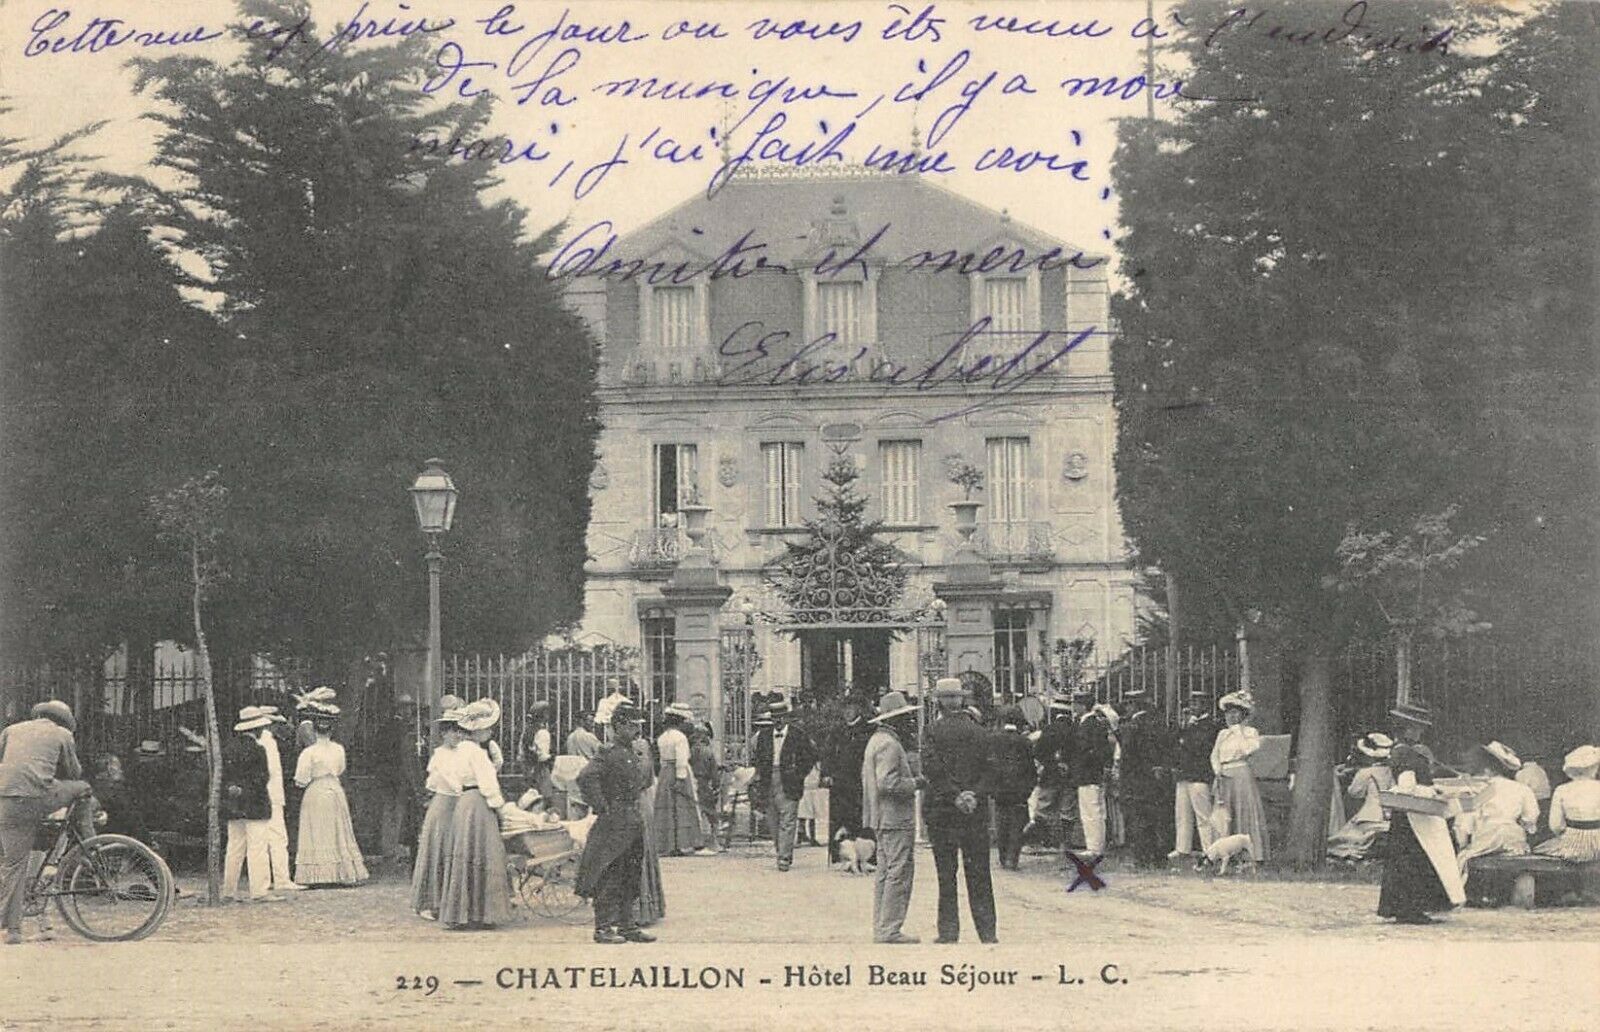 Cette vue est prise le jour ou vous êtes venu à l'endroit
de la musique, il y a mon
mari, j'ai fait une croix.
Amitié et merci.
Elisabeth
229 — CHATELAILLON - Hôtel Beau Séjour - L. C.